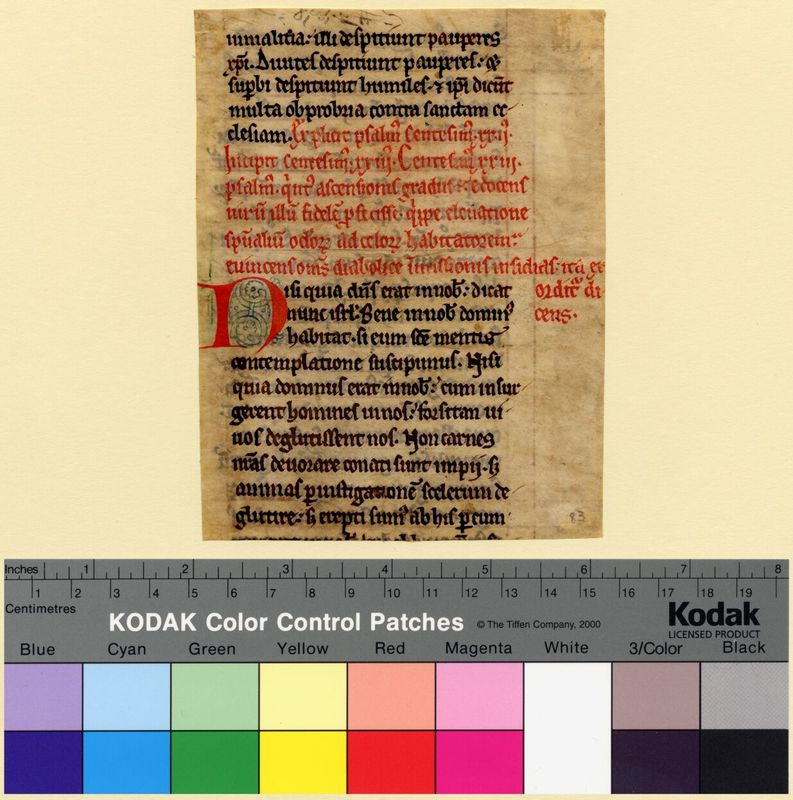 inimalitia: illi despitiunt pauperes
xp̄i. Diuites despitiunt pauperes. q̄
sup̄bi despitiunt humiles. ⁊ ip̄i dicūt
multa obprobria contra sanctam ec
clesiam. Explicit psalm̄ centesim̄. xxiij
Incipit centesim̄. xxiij. Centesim̄ xxiii.
psalm̄. ascensionis gradus: edocens
uirū illū fidelē eleuatione
sp̄ualiū odorꝝ ad celorꝝ habitatorem:
euincens om̄s diabolice insidias: ita ex
orditᷓ di
cens.
Nisi quia dn̄s erat in nob̄: dicat
nunc isrl̄. Bene in nob̄ domin᷒
habitat. si eum sc̄e mentis
contemplatione suscipimus. Nisi
quia dominus erat in nob̄: cum insur
gerent homines in nos: forsitan ui
uos deglutissent nos. Non carnes
nr̄as deuorare conati sunt impij. s;
animas ꝑ inuestigationē scelerum de
glutire: s; erepti sum᷒ ab his ꝑ eum
83
Inches 1 2 3 4 5 6 7 8
1 2 3 4 5 6 7 8 9 10 11 12 13 14 15 16 17 18 19
Centimetres
KODAK Color Control Patches © The Tiffen Company, 2000 Kodak
LICENSED PRODUCT
Blue Cyan Green Yellow Red Magenta White 3/Color Black